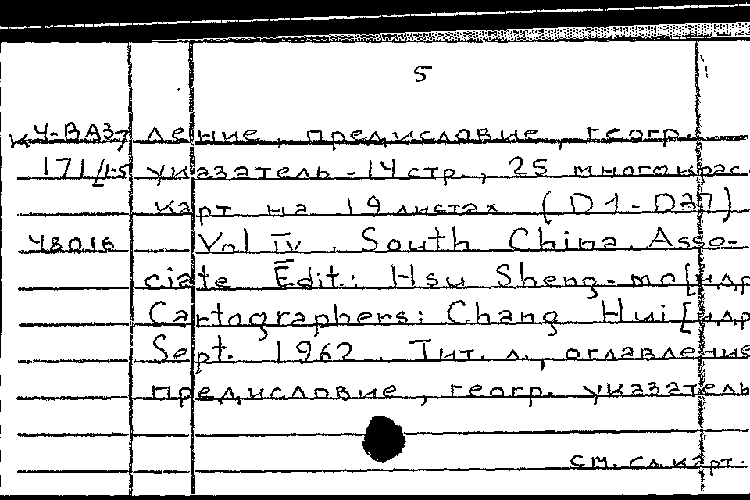 5
К4-ВАЗ7 ление, предисловие, геогр.
171/1-5 указатель - 14 стр., 25 многокрас
карт на 19 листах (D1-D27)
48016 Vol IV. South China. Asso-
ciate Edit: Hsu Sheng-mo [идр
Cartographers: Chang Hui [идр
Sept. 1962. Тит. л., оглавление
предисловие, геогр. указатель
см. сл. карт.